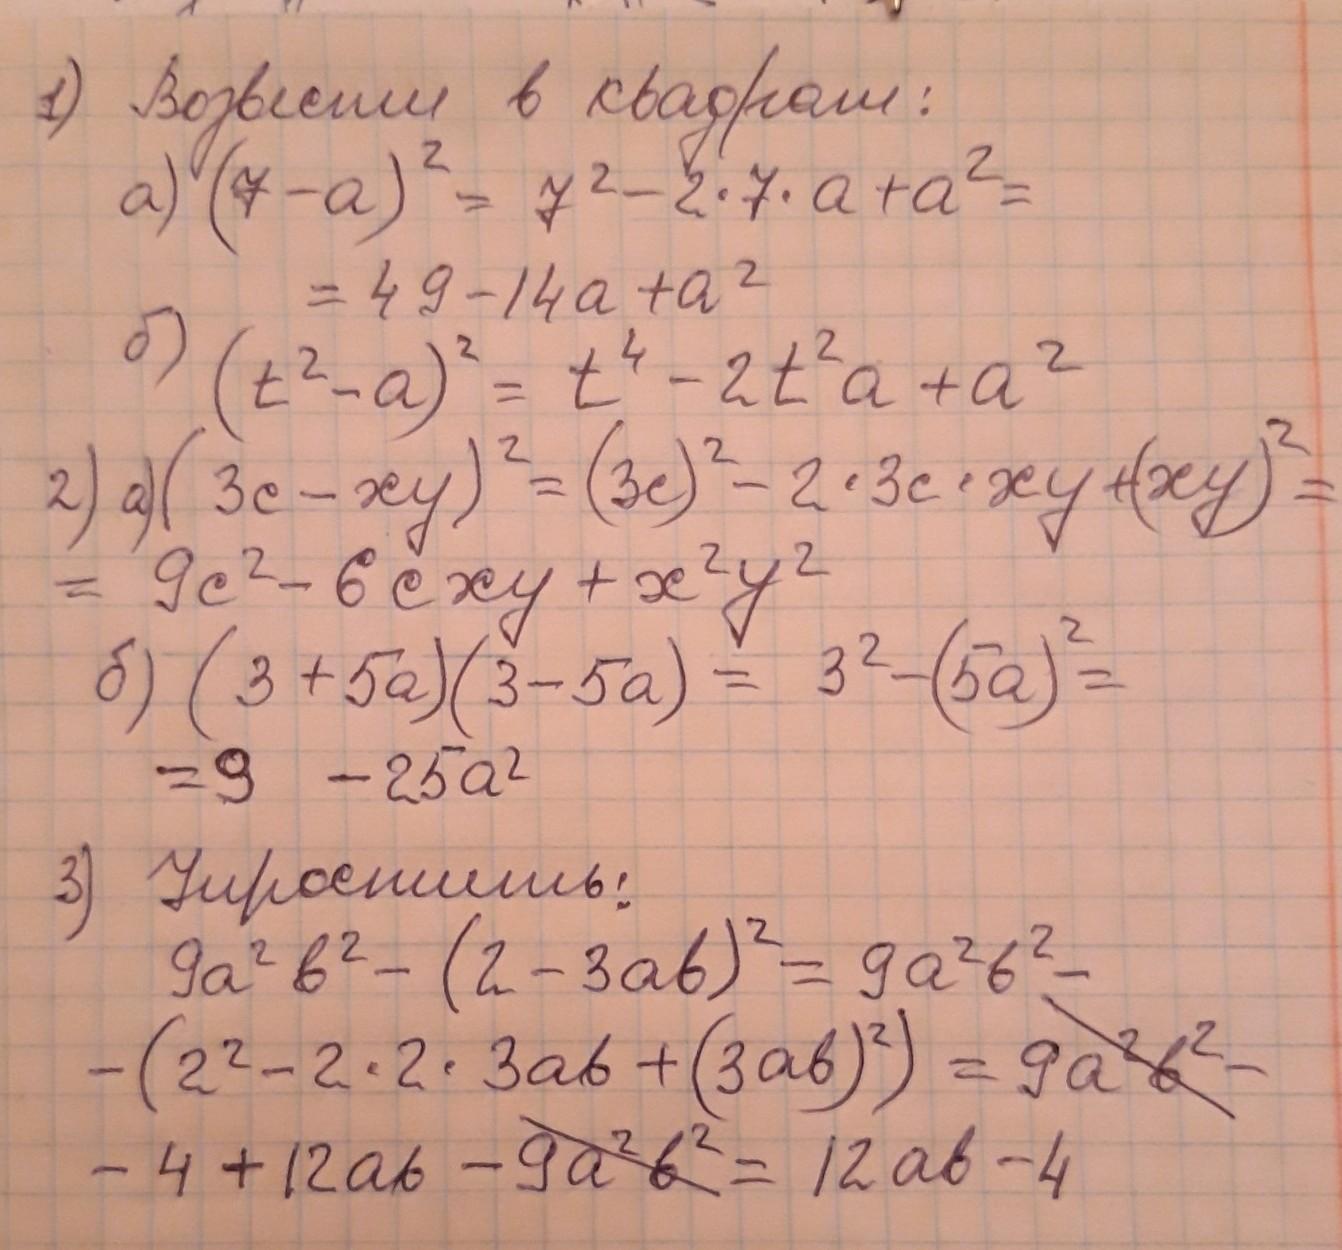 1) Возвести в квадрат:
а) (7 - a)² = 7² - 2·7·a + a² =
= 49 - 14a + a²
б) (t² - a)² = t⁴ - 2t²a + a²
2) а) (3c - xy)² = (3c)² - 2·3c·xy + (xy)² =
= 9c² - 6cxy + x²y²
б) (3 + 5a)(3 - 5a) = 3² - (5a)² =
= 9 - 25a²
3) Упростить:
9a²b² - (2 - 3ab)² = 9a²b² -
- (2² - 2·2·3ab + (3ab)²) = 9a²b² -
- 4 + 12ab - 9a²b² = 12ab - 4